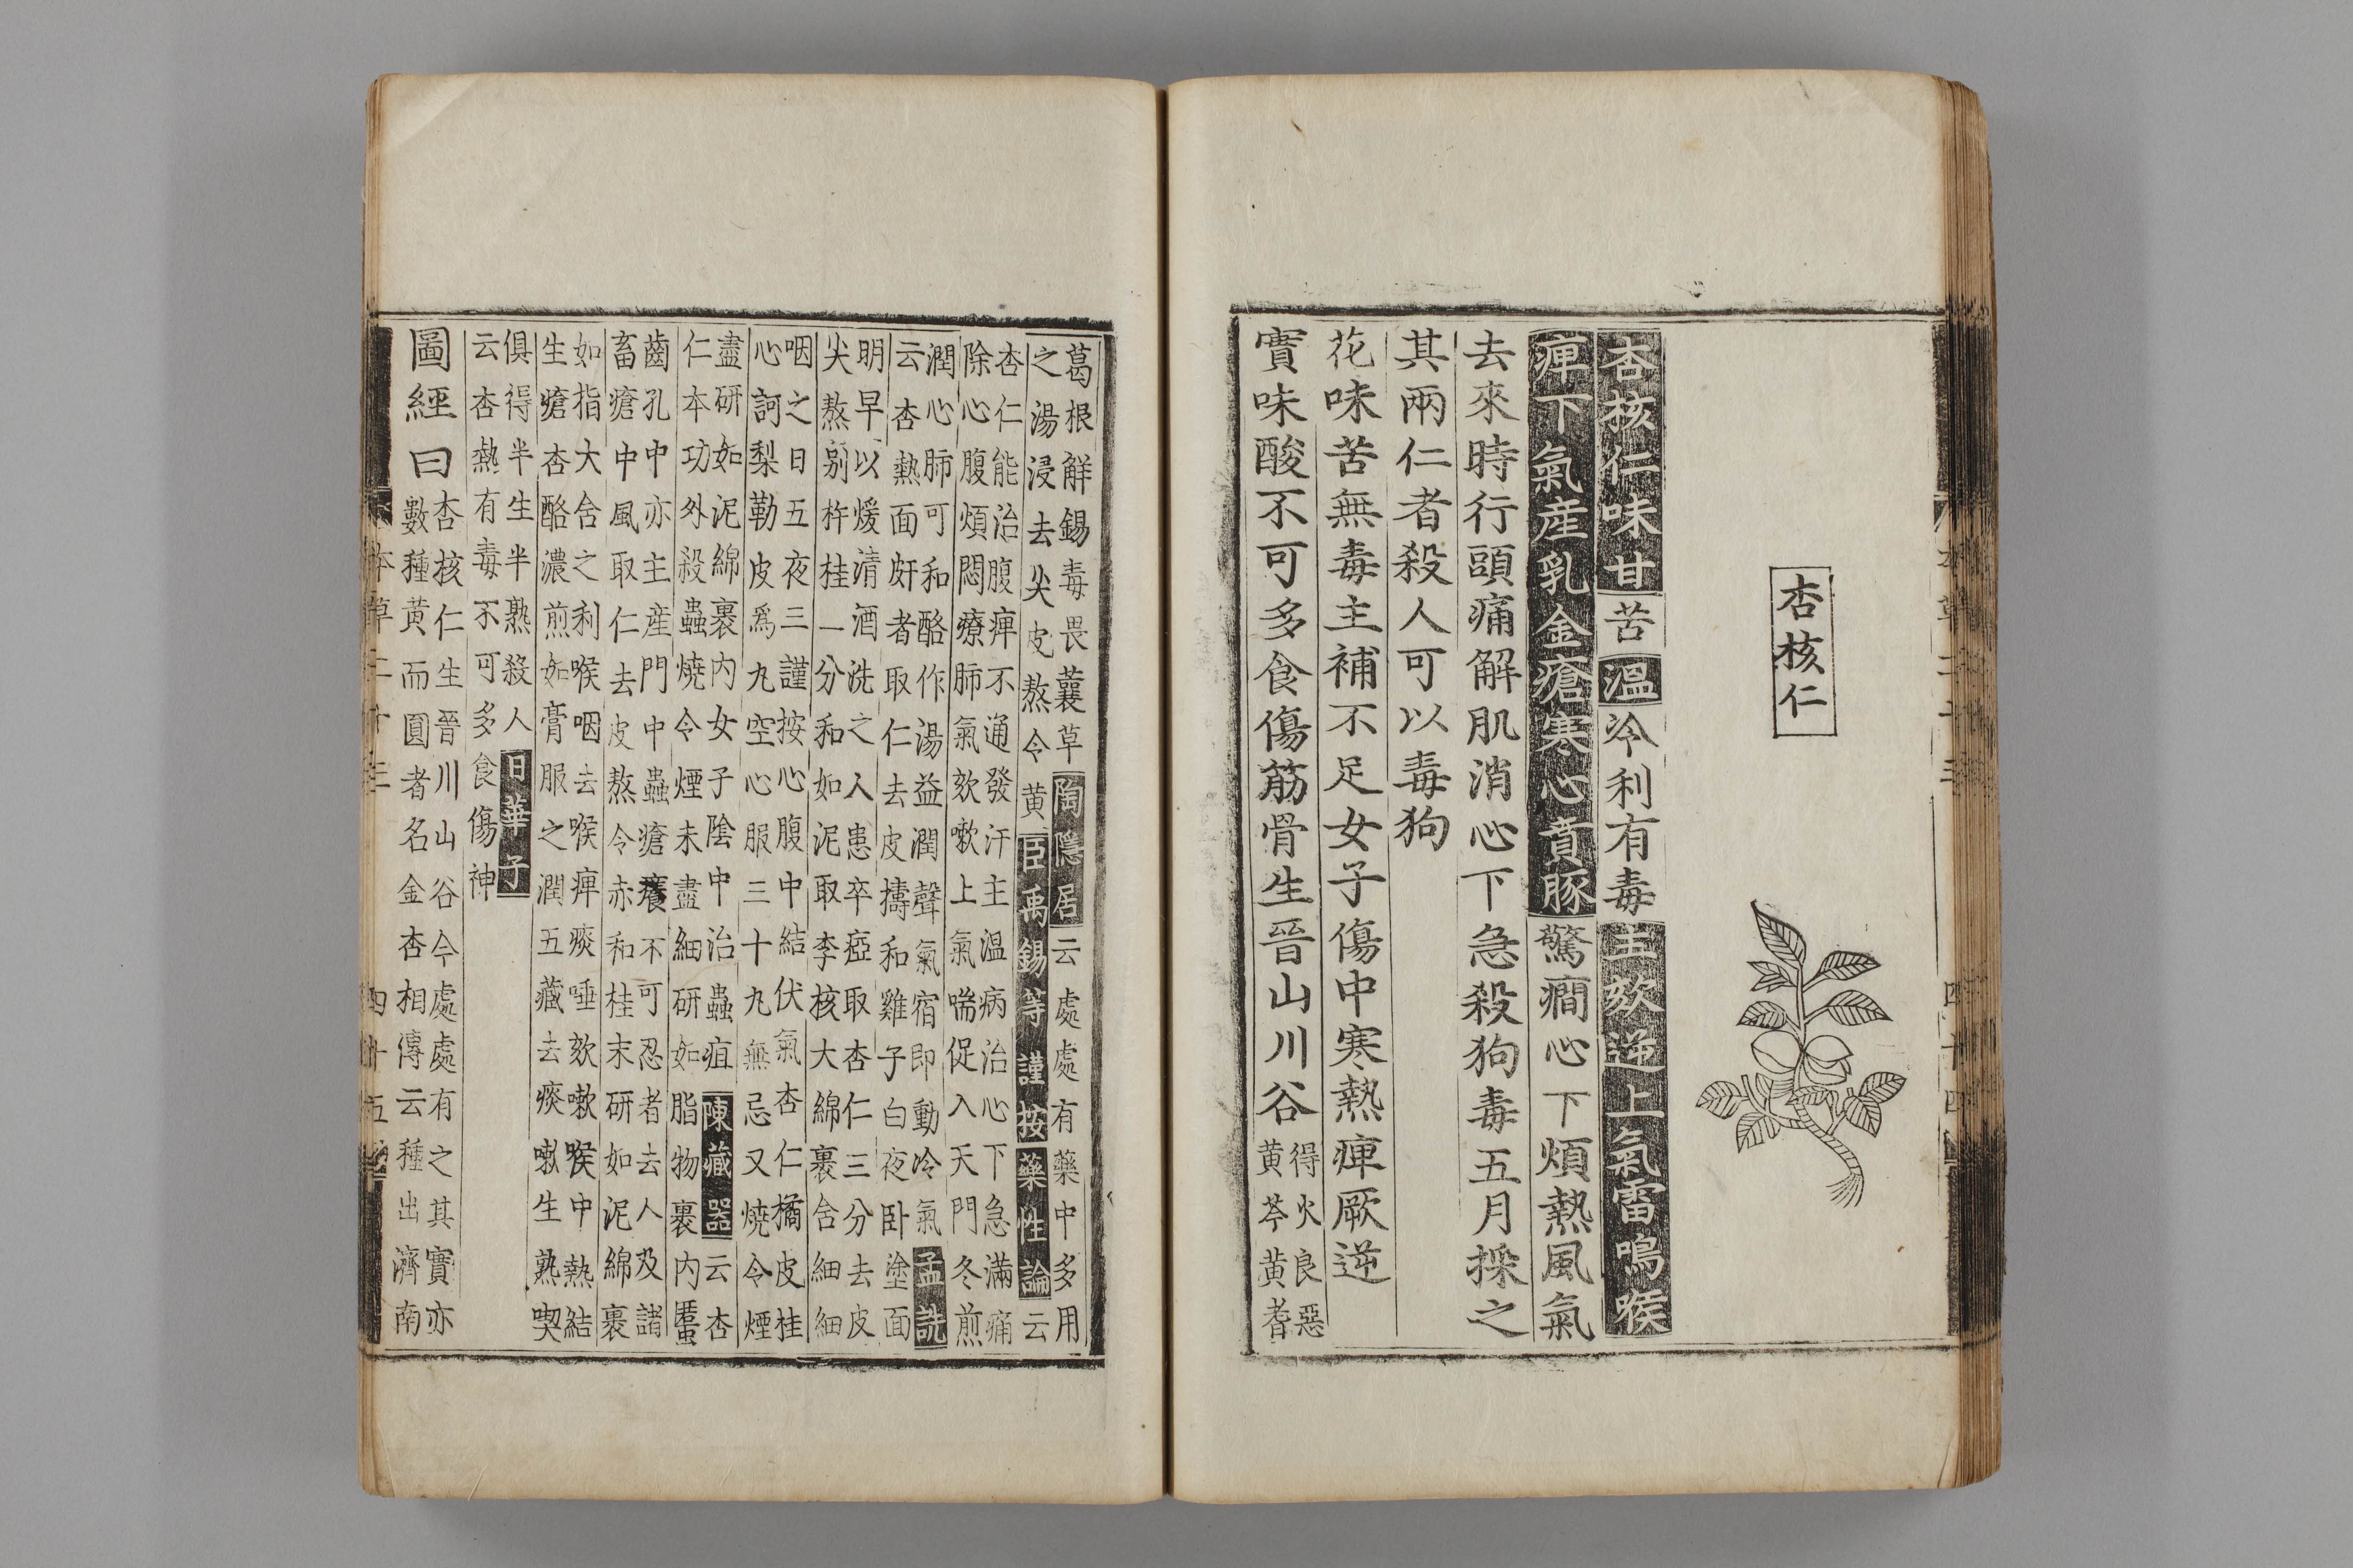 杏核仁
杏核仁味甘苦溫冷利有毒主欬逆上氣雷鳴喉
痺下氣産乳金瘡寒心賁豚驚癇心下煩熱風氣
去來時行頭痛解肌消心下急殺狗毒五月採之
其兩仁者殺人可以毒狗
花味苦無毒主補不足女子傷中寒熱痺厥逆
實味酸不可多食傷筋骨生晉山川谷
得火良惡
黃芩黃耆
葛根解錫毒畏蘘草陶隱居云處處有藥中多用
之湯浸去尖皮熬令黃臣禹錫等謹按藥性論云
杏仁能治腹痺不通發汗主溫病治心下急滿痛
除心腹煩悶療肺氣欬嗽上氣喘促入天門冬煎
潤心肺可和酪作湯益潤聲氣宿即動冷氣孟詵
云杏熱面皯者取仁去皮擣和雞子白夜卧塗面
明早以煖清酒洗之人患卒瘂取杏仁三分去皮
尖熬别杵桂一分和如泥取李核大綿裹含細細
咽之日五夜三謹按心腹中結伏氣杏仁橘皮桂
心訶梨勒皮爲丸空心服三十丸無忌又燒令煙
盡研如泥綿裹内女子陰中治蟲疽陳藏器云杏
仁本功外殺蟲燒令煙未盡細研如脂物裹内䘌
齒孔中亦主産門中蟲瘡癢不可忍者去人及諸
畜瘡中風取仁去皮熬令赤和桂末研如泥綿裹
如指大含之利喉咽去喉痺痰唾欬嗽喉中熱結
生瘡杏酪濃煎如膏服之潤五藏去痰嗽生熟喫
俱得半生半熟殺人日華子
云杏熱有毒不可多食傷神
圖經曰
杏核仁生晉川山谷今處處有之其實亦
數種黃而圓者名金杏相傳云種出濟南
本草二十三 四十五